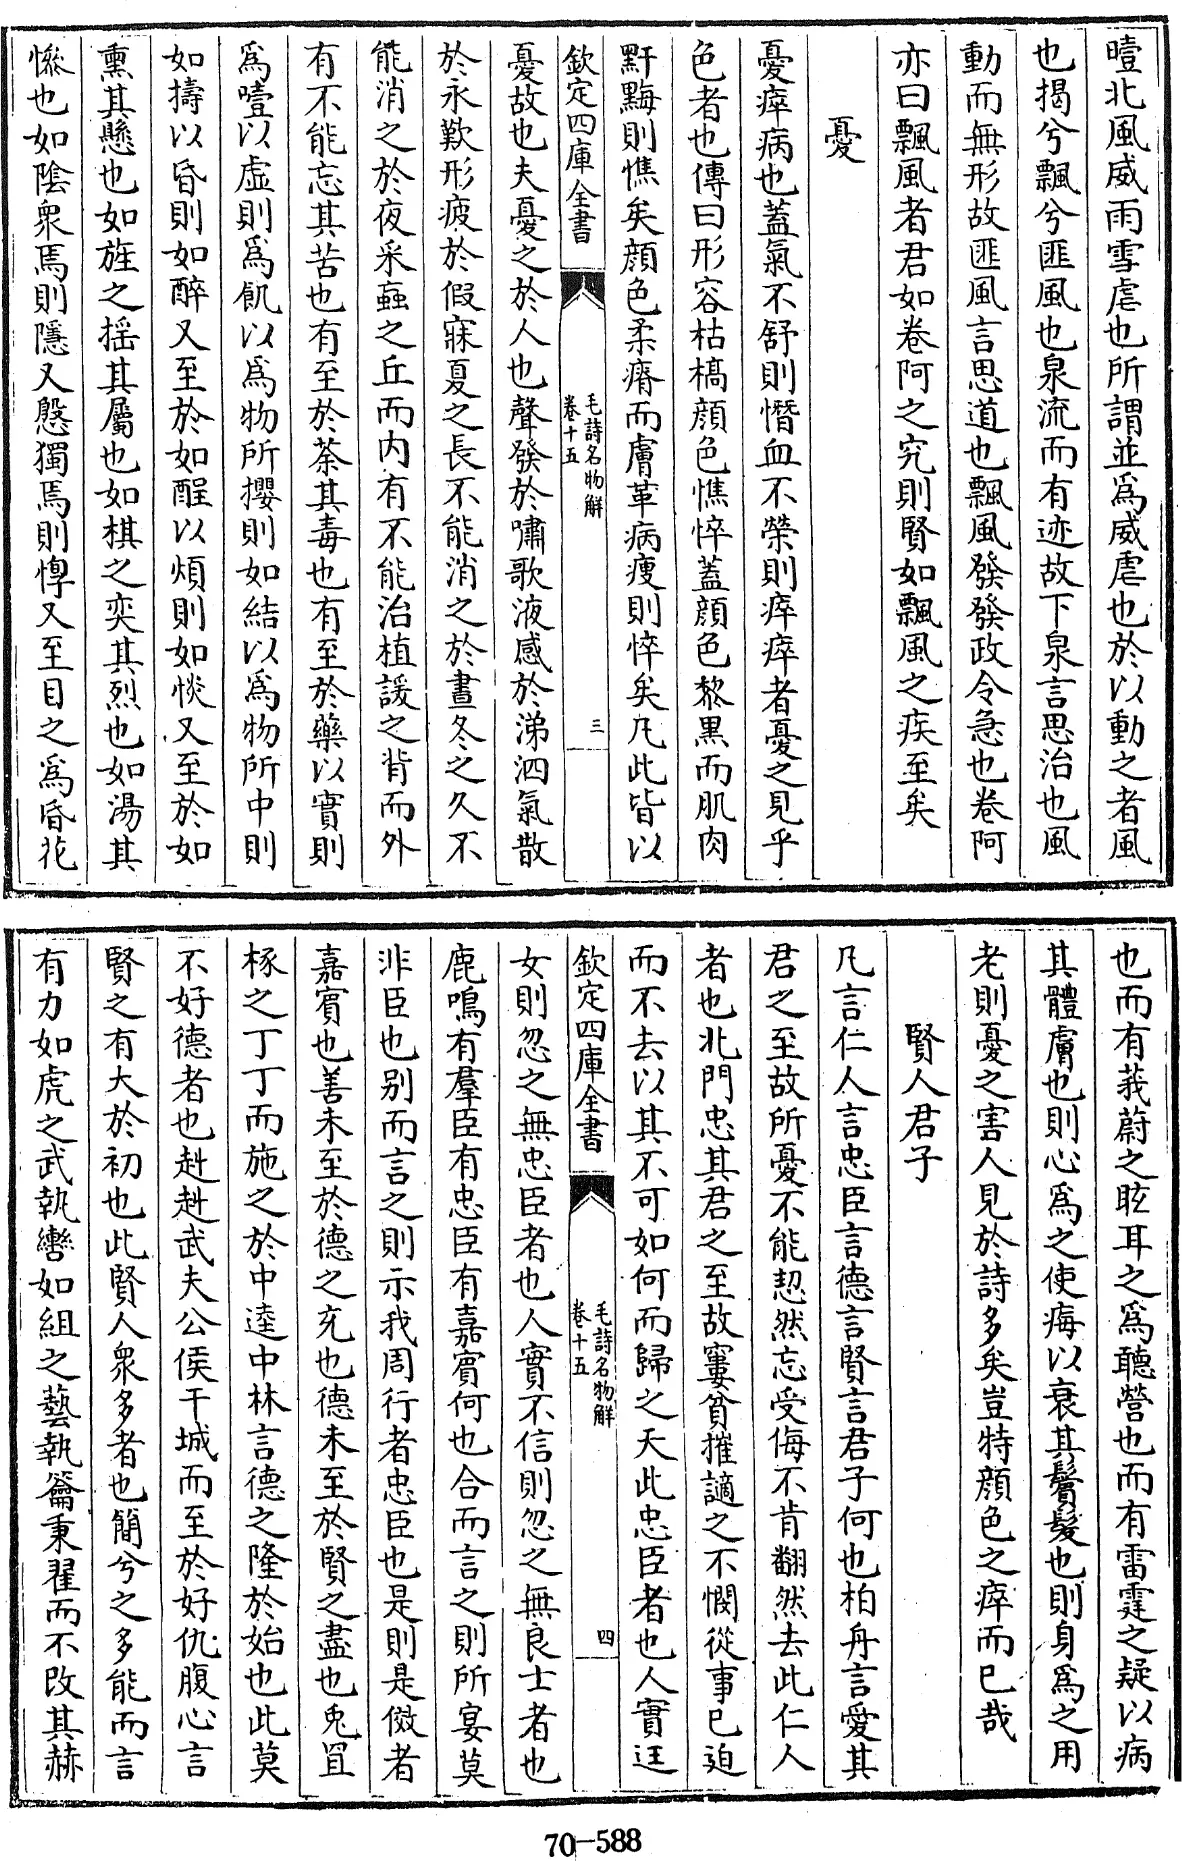 曀北風威雨雪虐也所謂並為威虐也於以動之者風
也揭兮飄兮匪風也泉流而有迹故下泉言思治也風
動而無形故匪風言思道也飄風發發政令急也卷阿
亦曰飄風者君如卷阿之究則賢如飄風之疾至矣
憂
憂瘁病也蓋氣不舒則憯血不榮則瘁瘁者憂之見乎
色者也傳曰形容枯槁顔色憔悴蓋顔色黎黒而肌肉
黚黣則憔矣顔色柔瘠而膚革病瘦則悴矣凡此皆以
欽定四庫全書
毛詩名物解
卷十五
三
憂故也夫憂之於人也聲發於嘯歌液感於涕泗氣散
於永歎形疲於假寐夏之長不能消之於晝冬之久不
能消之於夜采蝱之丘而内有不能治植諼之背而外
有不能忘其苦也有至於荼其毒也有至於藥以實則
為噎以虚則為飢以為物所攖則如結以為物所中則
如擣以昏則如醉又至於如酲以煩則如惔又至於如
熏其懸也如旌之揺其屬也如棋之奕其烈也如湯其
慘也如陰衆焉則隱又慇獨焉則惸又至目之為昏花
也而有莪蔚之眩耳之為聽營也而有雷霆之疑以病
其體膚也則心為之使痗以衰其鬢髮也則身為之用
老則憂之害人見於詩多矣豈特顔色之瘁而已哉
賢人君子
凡言仁人言忠臣言德言賢言君子何也柏舟言愛其
君之至故所憂不能恝然忘受侮不肯翻然去此仁人
者也北門忠其君之至故窶貧摧讁之不憫從事已迫
而不去以其不可如何而歸之天此忠臣者也人實迋
欽定四庫全書
毛詩名物解
卷十五
四
女則忽之無忠臣者也人實不信則忽之無良士者也
鹿鳴有羣臣有忠臣有嘉賓何也合而言之則所宴莫
非臣也别而言之則示我周行者忠臣也是則是傚者
嘉賓也善未至於德之充也德未至於賢之盡也兎罝
椓之丁丁而施之於中逵中林言德之隆於始也此莫
不好德者也赳赳武夫公侯干城而至於好仇腹心言
賢之有大於初也此賢人衆多者也簡兮之多能而言
有力如虎之武執轡如組之藝執籥秉翟而不改其赫
70-588